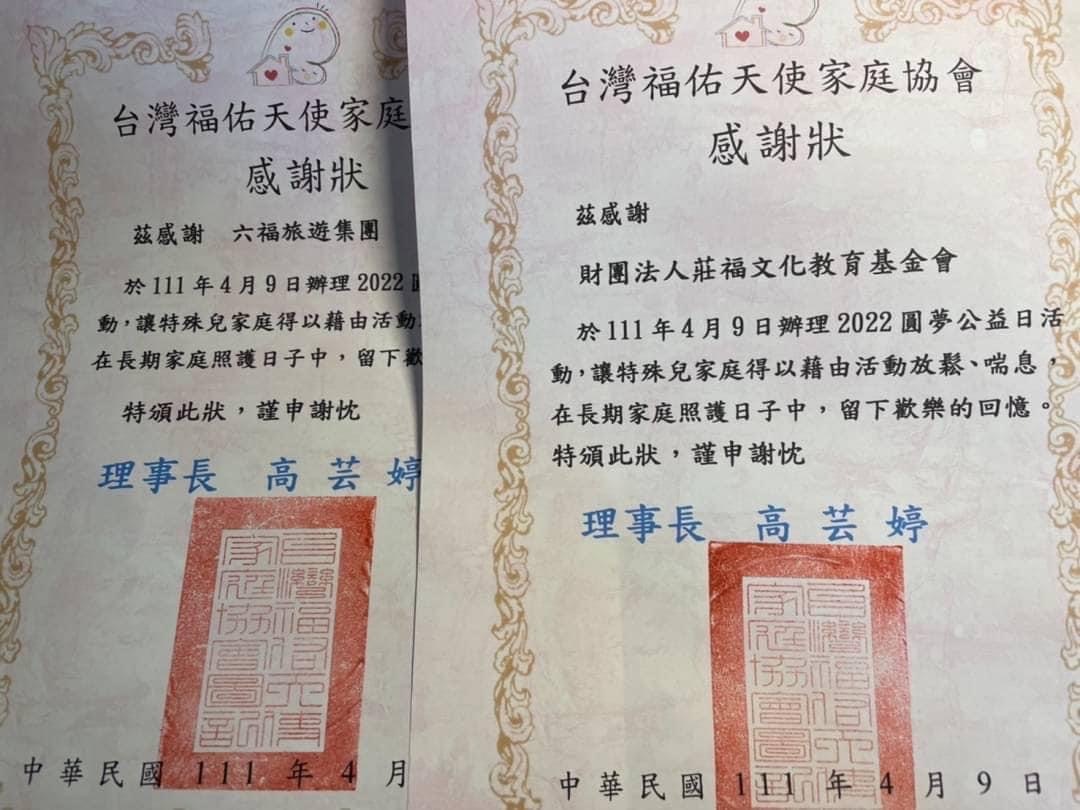 台灣福佑天使家庭
感謝狀
茲感謝 六福旅遊集團
於111年4月9日辦理2022
動，讓特殊兒家庭得以藉由活動
在長期家庭照護日子中，留下歡
特頒此狀，謹申謝忱
理事長 高芸婷
台灣福佑天使
家庭協會圖記
中華民國 111 年 4 月
台灣福佑天使家庭協會
感謝狀
茲感謝
財團法人莊福文化教育基金會
於111年4月9日辦理2022圓夢公益日活
動，讓特殊兒家庭得以藉由活動放鬆、喘息，
在長期家庭照護日子中，留下歡樂的回憶。
特頒此狀，謹申謝忱
理事長 高芸婷
台灣福佑天使
家庭協會圖記
中華民國 111 年 4 月 9 日